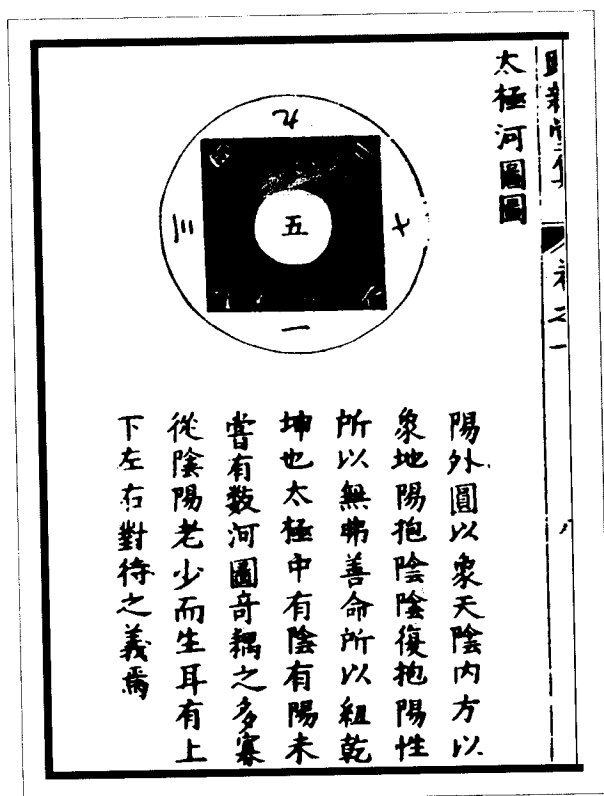 卷之一
太極河圖圖
九
三
五
七
一
陽外圓以象天陰内方以
象地陽抱陰陰復抱陽性
所以無弗善命所以紐乾
坤也太極中有陰有陽未
嘗有数河圖奇耦之多寡
從陰陽老少而生耳有上
下左右對待之義焉